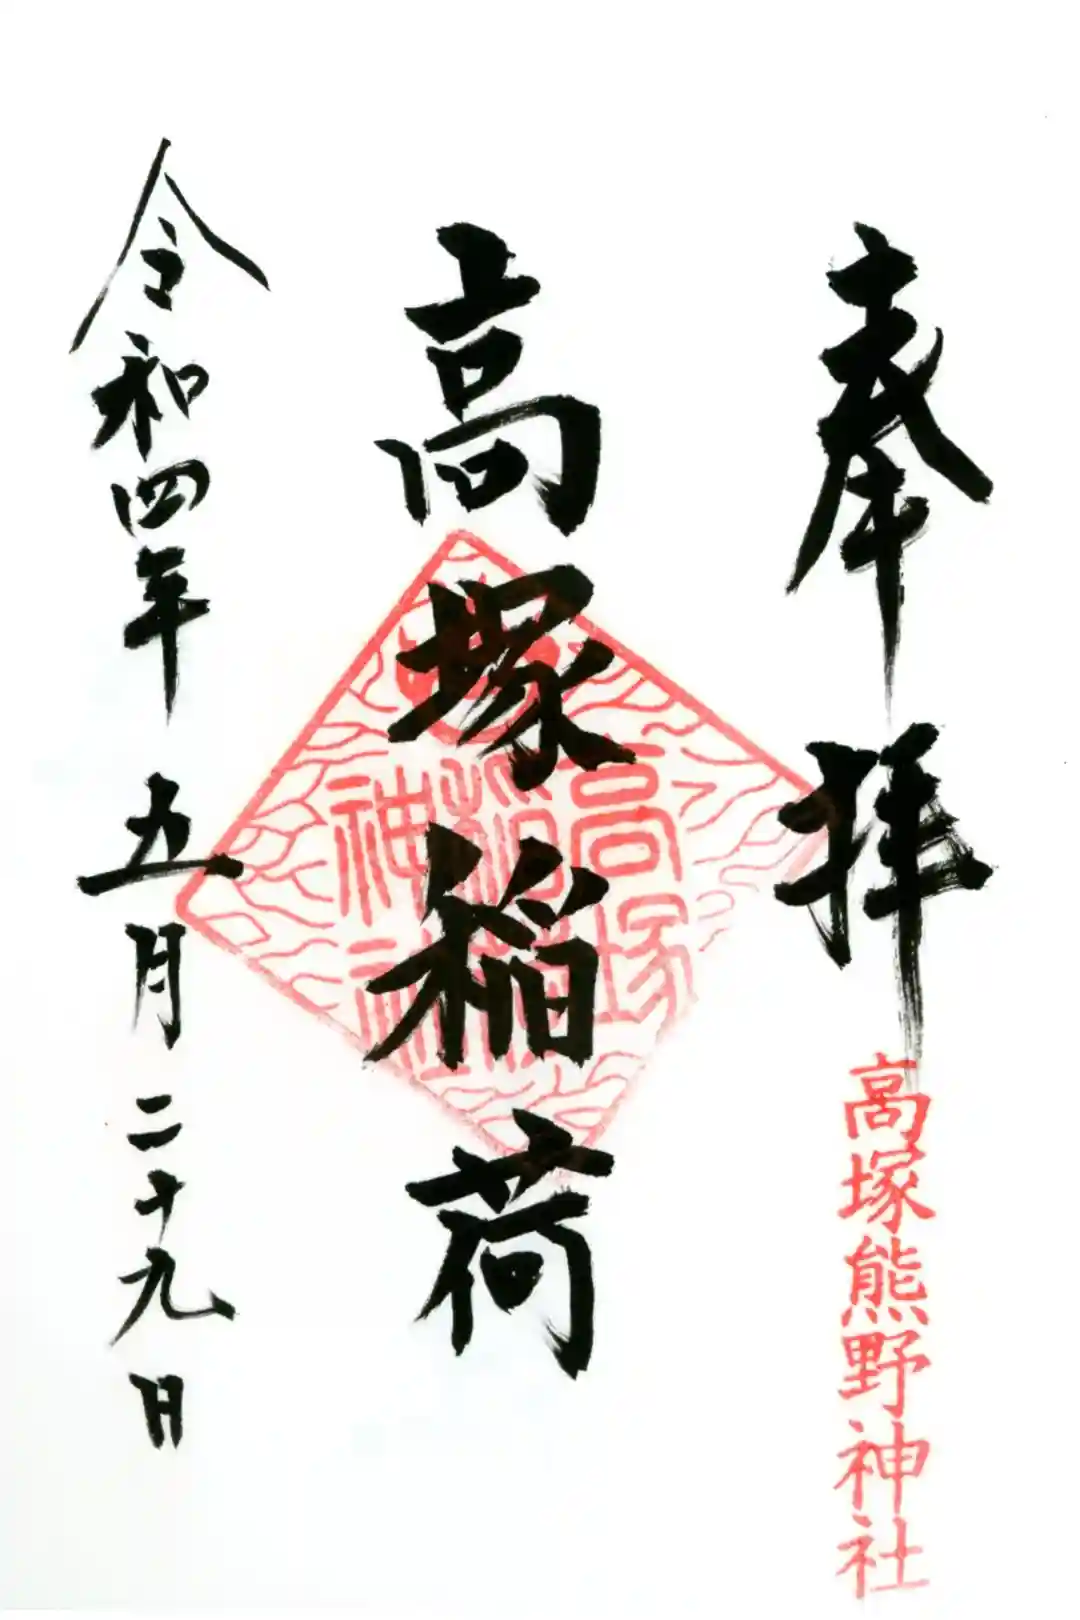 奉拝
高塚熊野神社
高塚稲荷
高塚
稲荷
神社
令和四年五月二十九日